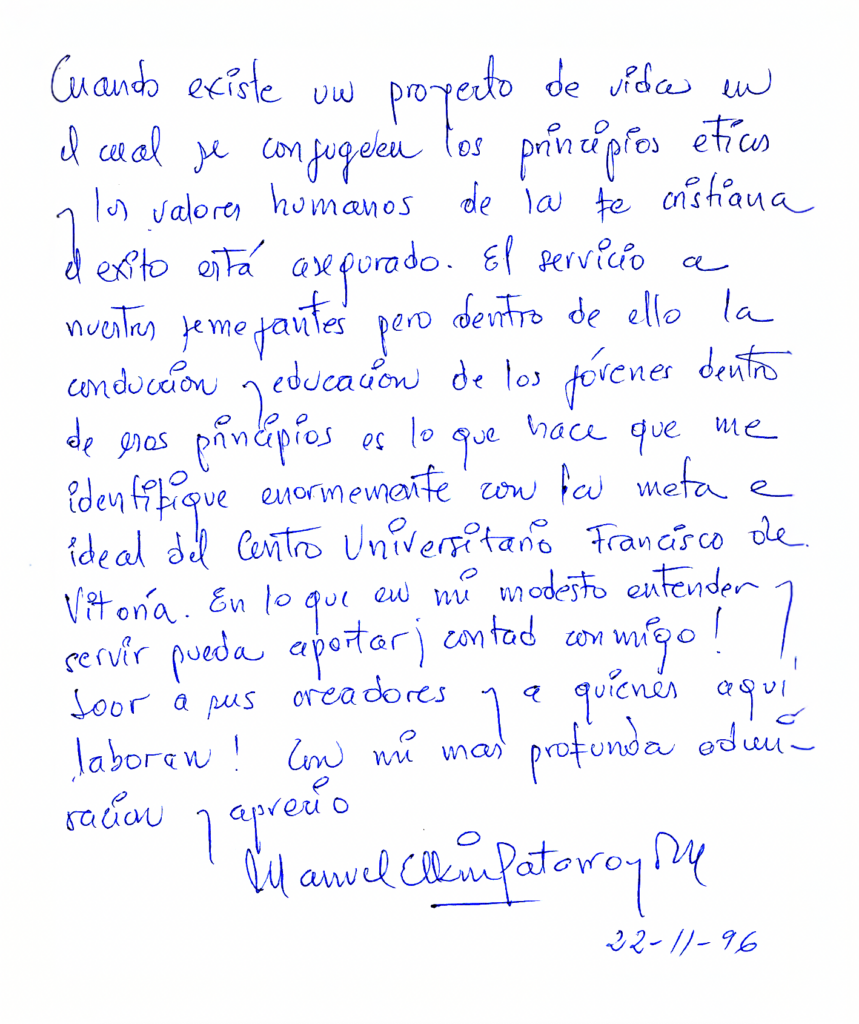 Cuando existe un proyecto de vida en
el cual se conjugeen los principios eticos
y los valores humanos de la fe cristiana
el exito está asegurado. El servicio a
nuestros semejantes pero dentro de ello la
conduccion y educacion de los jóvenes dentro
de esos principios es lo que hace que me
identifique enormemente con la meta e
ideal del Centro Universitario Francisco de
Vitoria. En lo que en mi modesto entender y
servir pueda aportar ¡ contad conmigo!
Loor a sus creadores y a quienes aquí
laboran! Con mi mas profunda admi-
racion y aprecio
Manuel Elkin Patarroyo M
22-11-96